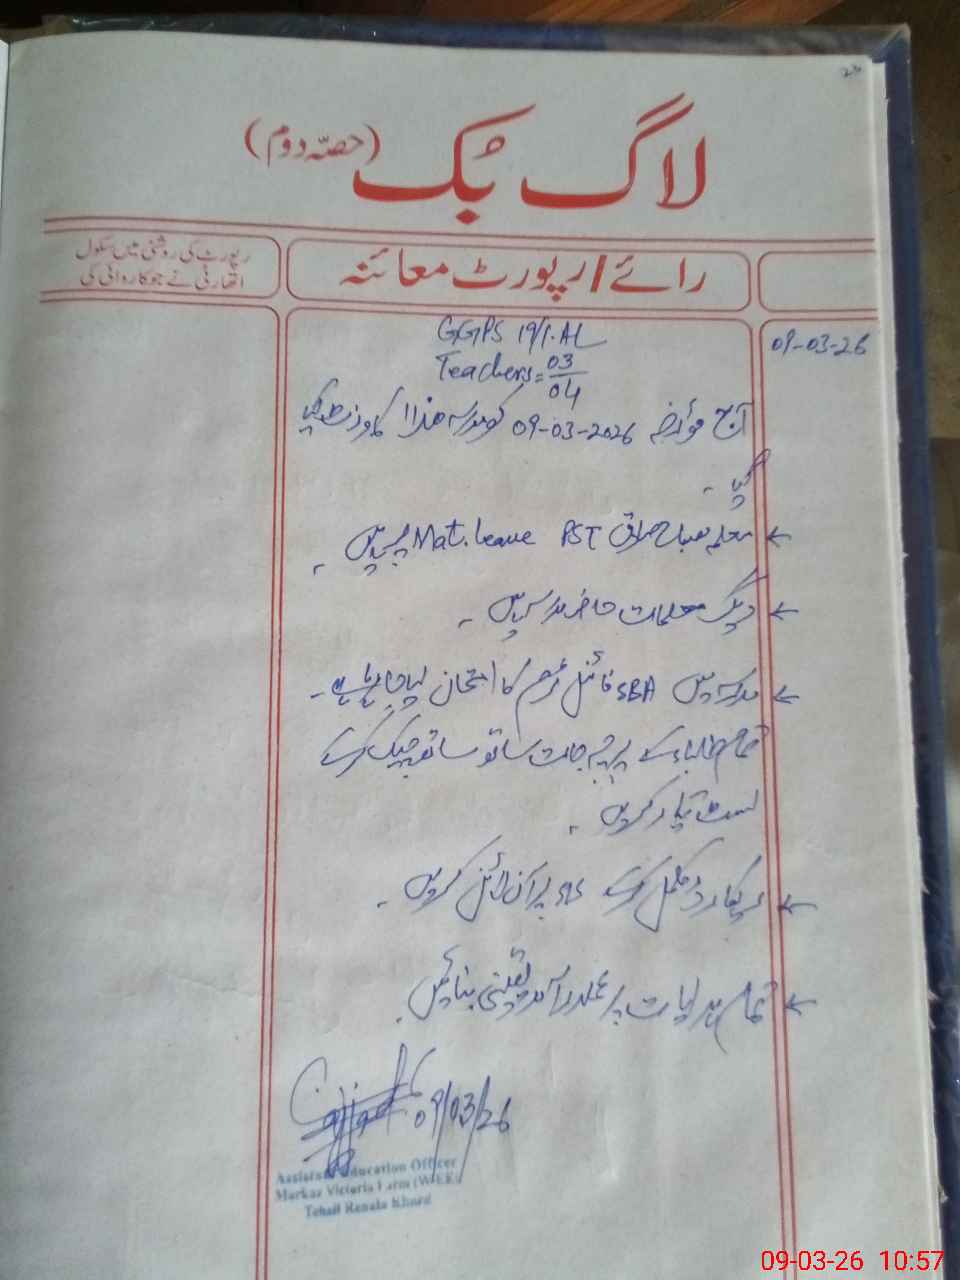 23
لاگ بُک (حصّہ دوم)
رائے/رپورٹ معائنہ
رپورٹ کی روشنی میں سکول
اتھارٹی نے جو کاروائی کی
09-03-26
GGPS 19/1.AL
Teachers = 03/04
آج مؤرخہ 09-03-2026 کو مدرسہ ھذا کا وزٹ کیا
گیا۔
← معلمہ صباح صادق PST Mat. leave پر ہیں۔
← دیگر معلمات حاضر مدرسہ ہیں۔
← مدرسہ میں SBA فائنل ٹرم کا امتحان لیا جا رہا ہے۔
تمام طلباء کے پرچہ جات ساتھ ساتھ چیک کر کے
لسٹ تیار کریں۔
← ریکارڈ مکمل کر کے پر آن لائن کریں۔
← تمام ہدایات پر عملدرآمد یقینی بنائیں۔
09/03/26
Assistant Education Officer
Markaz Victoria Farm (W-EE)
Tehsil Renala Khurd
09-03-26 10:57